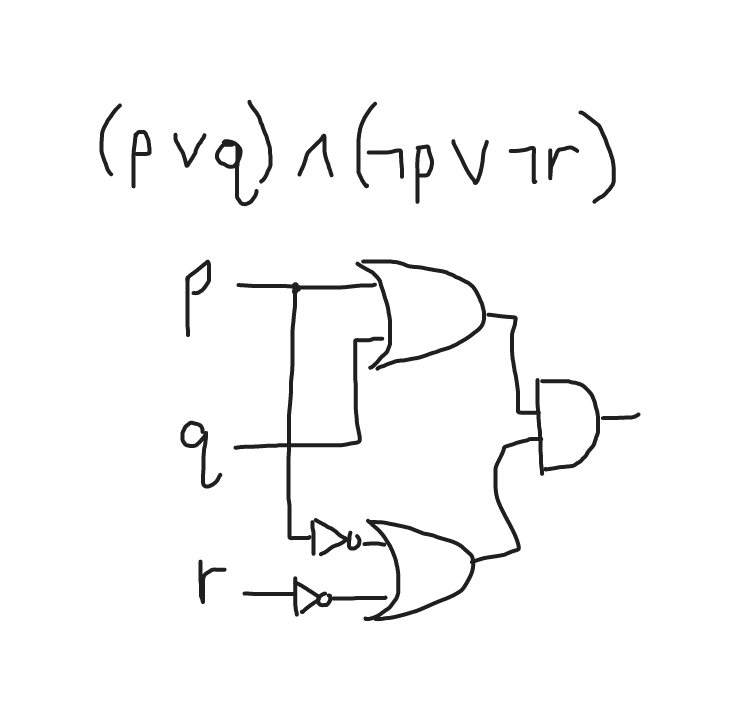 (p ∨ q) ∧ (¬p ∨ ¬r)
p
q
r